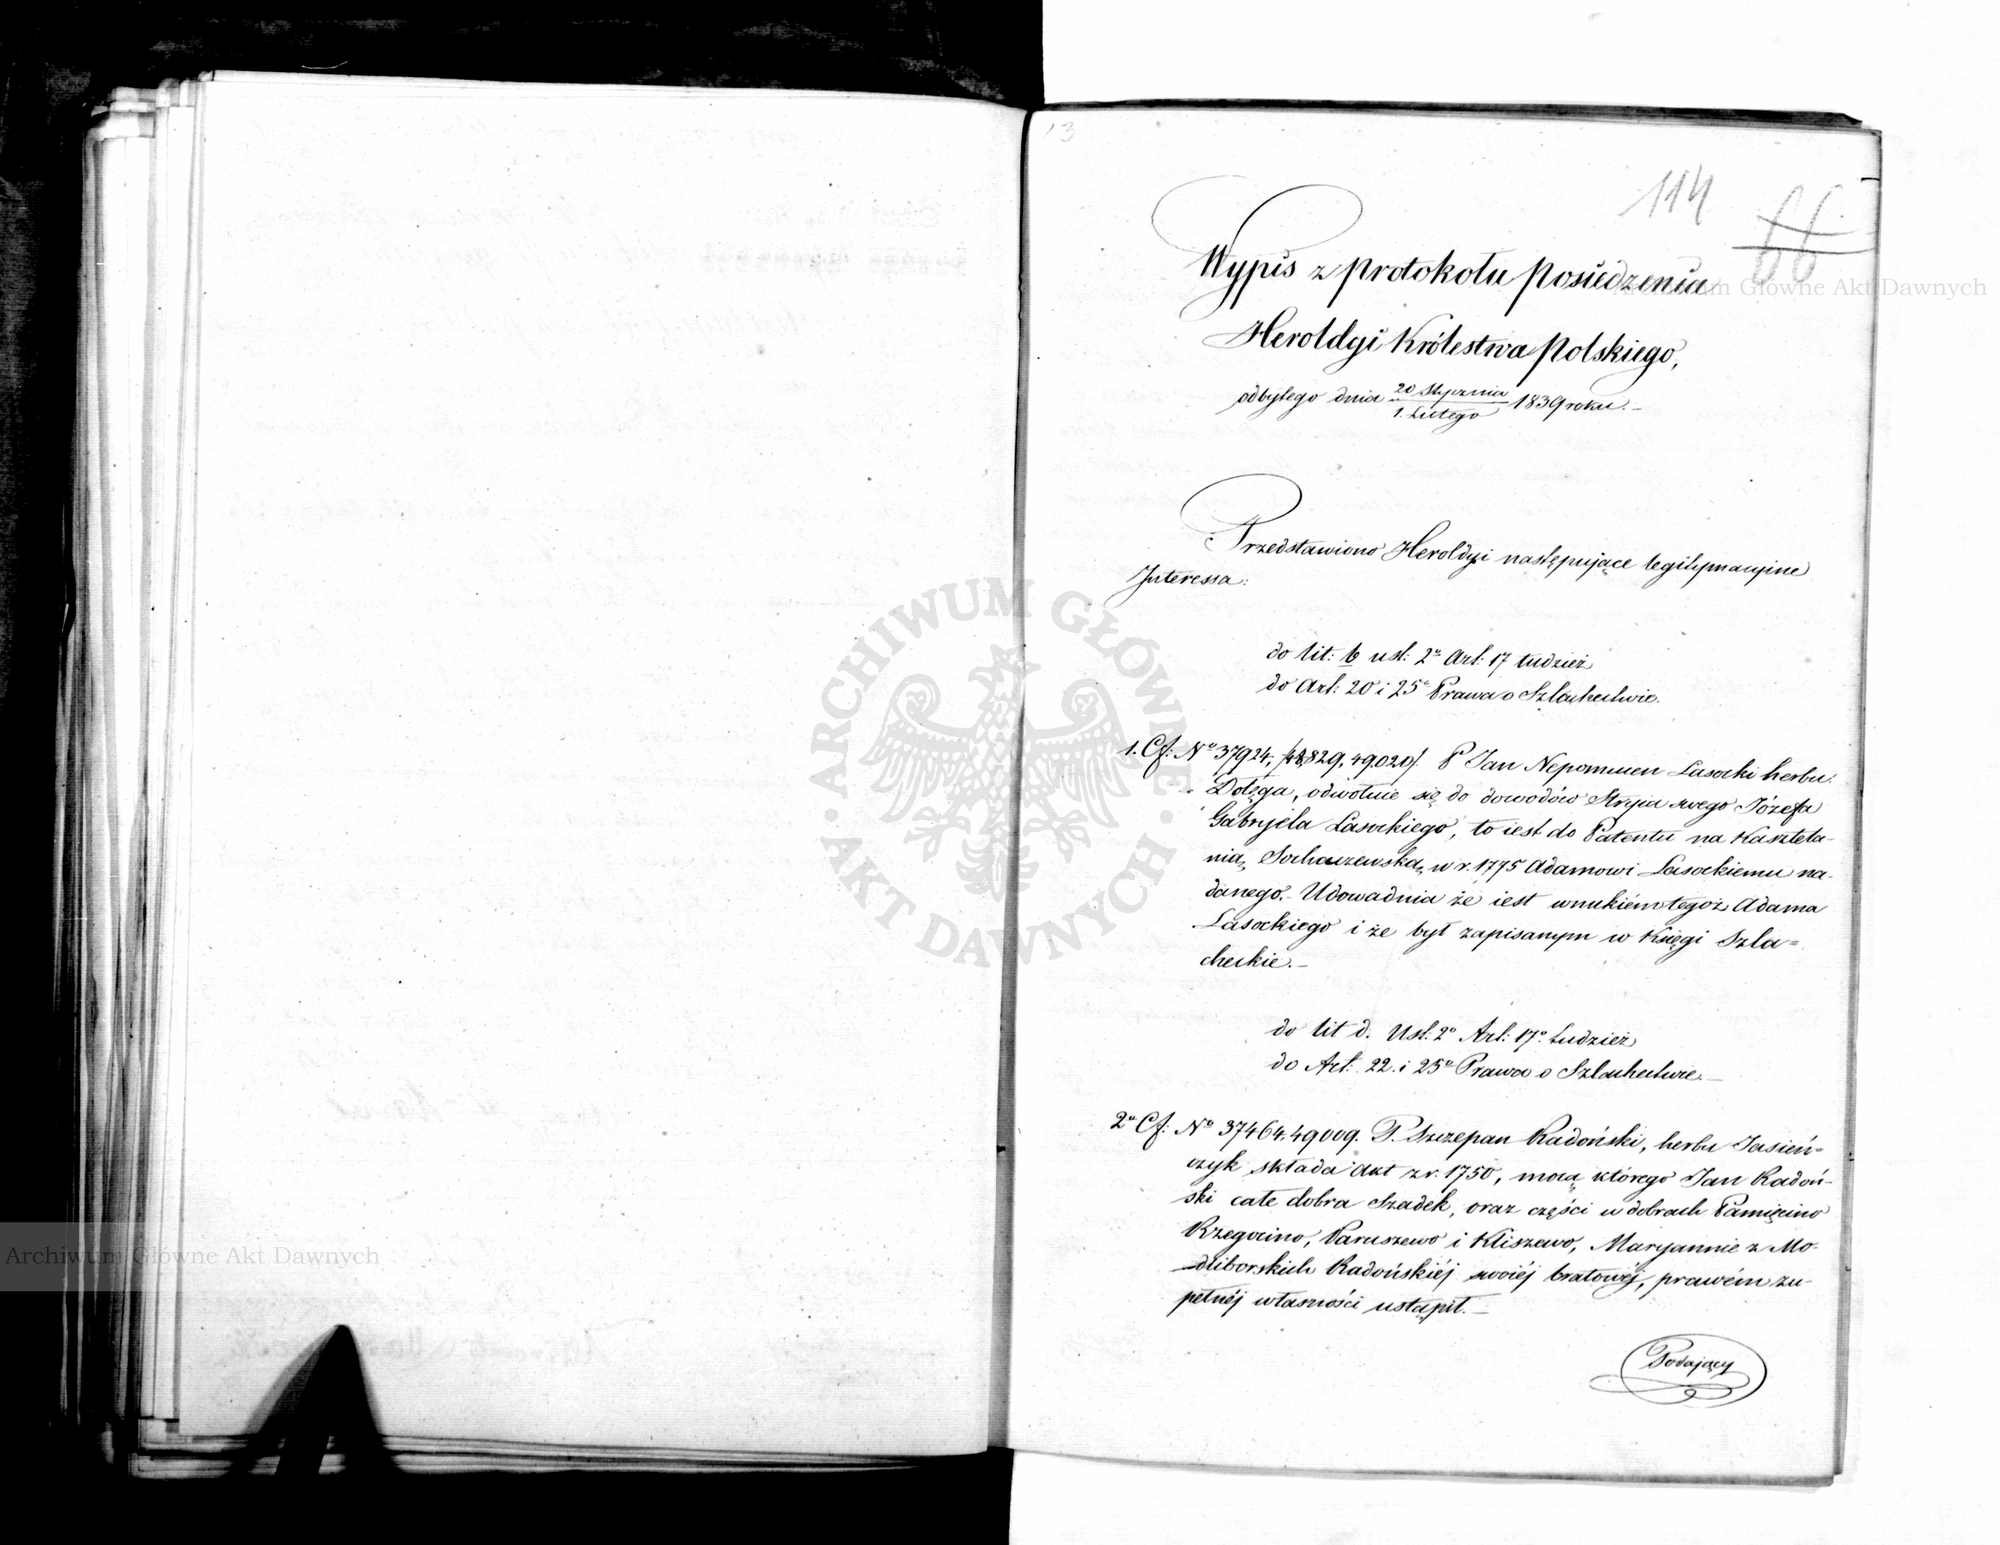 13
114
66
Wypis z protokołu Posiedzenia
Heroldyi Królestwa Polskiego,
odbytego dnia 20 Stycznia / 1. Lutego 1839 roku.–
Przedstawiono Heroldyi następujące legitymacyine
Interessa:
do lit: b ust: 2º Art: 17 tudzież
do Art: 20 i 25º Prawa o Szlachectwie.
1. Cf: Nº 37924, /48,829, 49,020/. P Jan Nepomucen Lasocki herbu
Dołęga, odwołuie się do dowodów Stryia swego Józefa
Gabryiela Lasockiego, to iest do Patentu na Kasztela-
nią Sochaczewską, w r. 1775 Adamowi Lasockiemu na-
danego.– Udowadnia że iest wnukiém tegoż Adama
Lasockiego i że był zapisanym w Księgi Szla=
checkie.–
do lit d. Ust: 2º Art: 17º tudzież
do Art: 22. i 25º Prawa o Szlachectwie.–
2º Cf: Nº 37464. 49009. P. Szczepan Radoński, herbu Jasień=
czyk składa Akt z r. 1750, mocą którego Jan Radoń-
ski całe dobra Szadek, oraz części w dobrach Pamięcino
Rzegocino, Paruszewo i Kliszewo, Maryannie z Mo-
dliborskich Radońskiéj swoiéj bratowéj, prawém zu-
pełnéj własności ustąpił.–
Podający
ARCHIWUM GŁÓWNE · AKT DAWNYCH ·
Archiwum Główne Akt Dawnych
Archiwum Główne Akt Dawnych